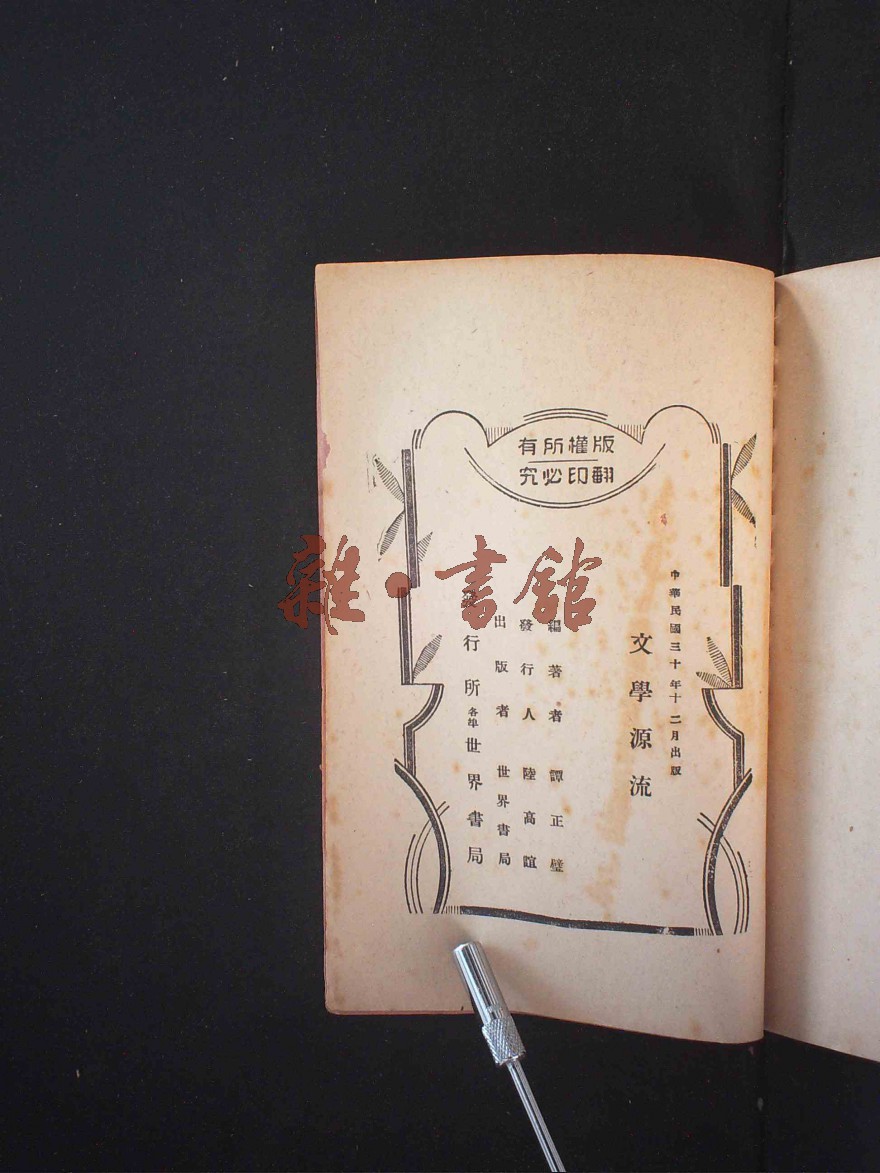 版權所有
翻印必究
中華民國三十年十二月出版
文學源流
編著者 譚正璧
發行人 陸高誼
出版者 世界書局
發行所 各埠 世界書局
雜·書館